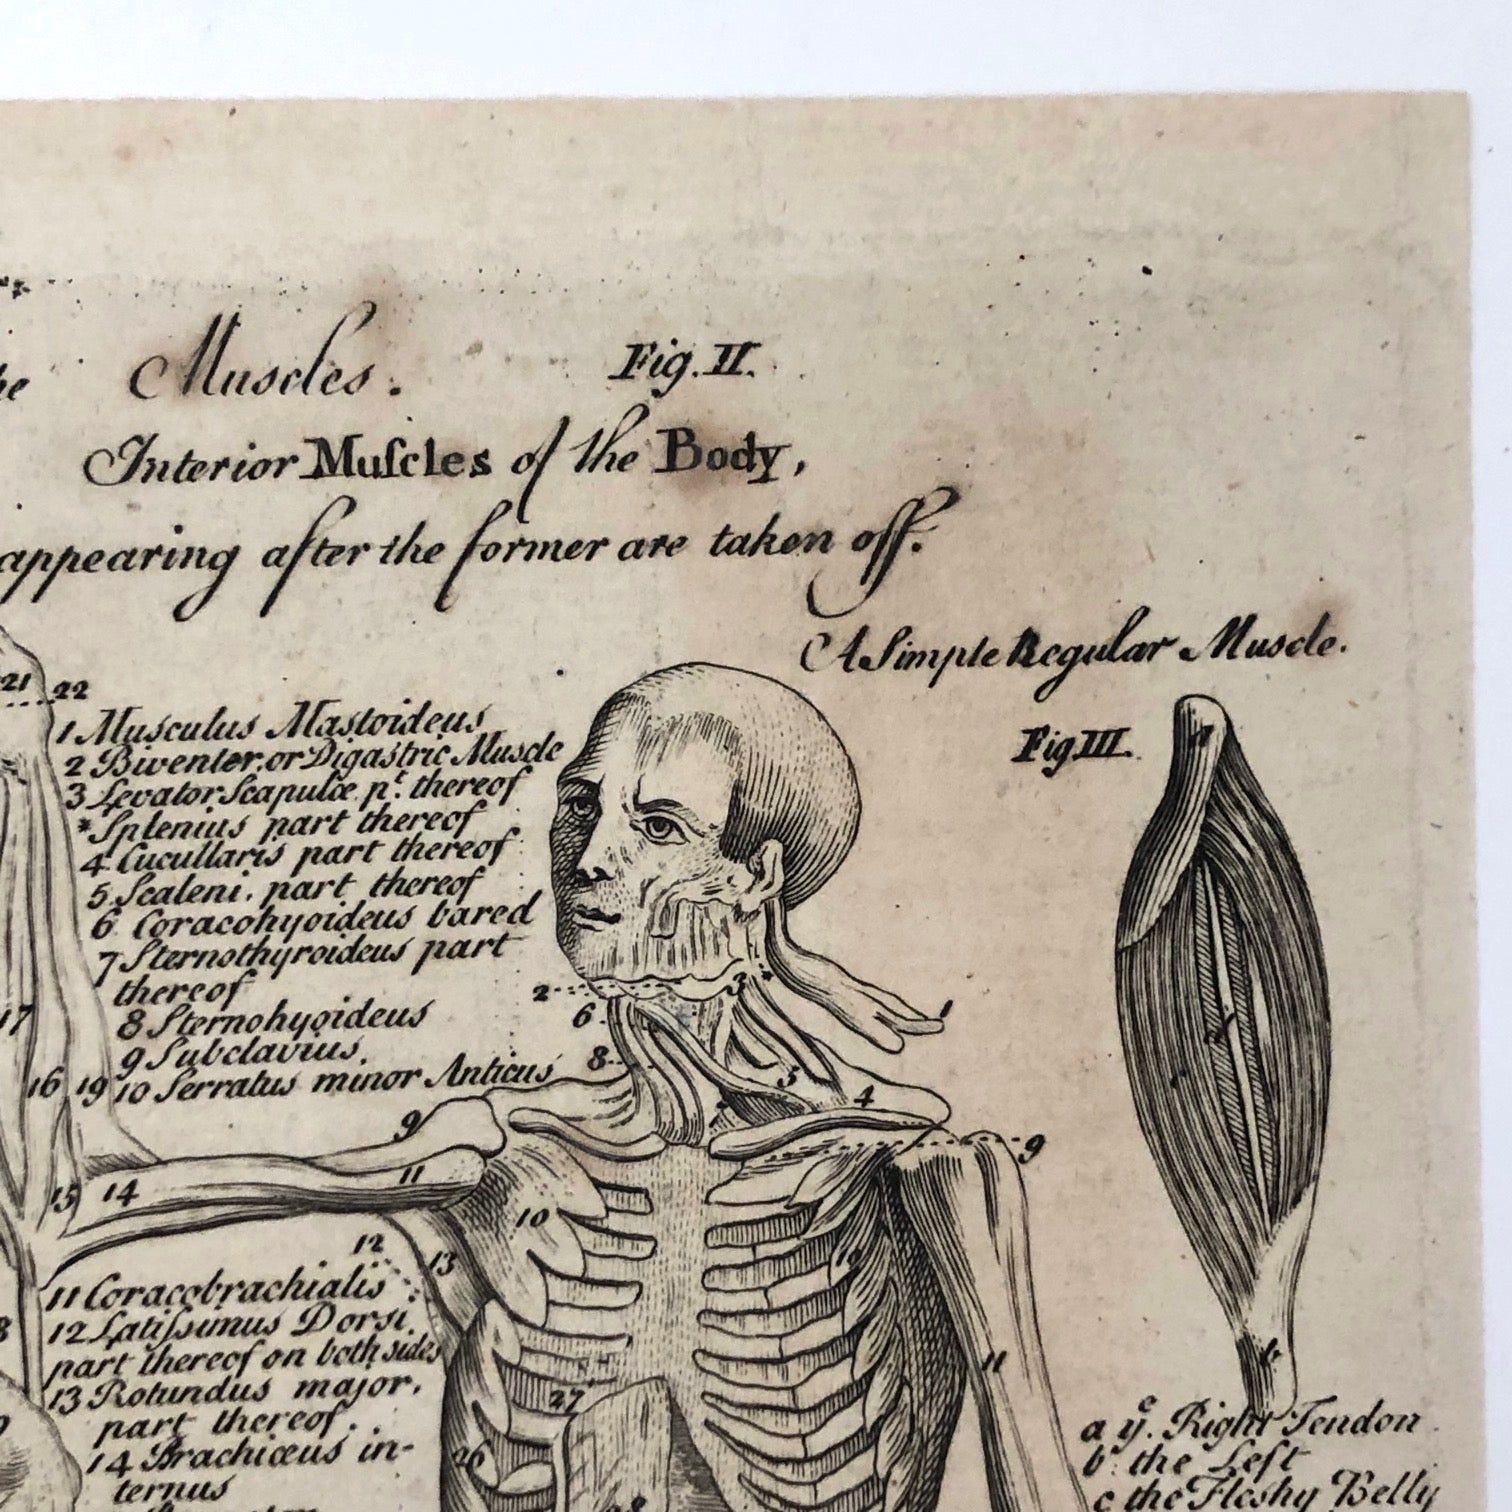 he Muscles. Fig. II.
Interior Muſcles of the Body,
appearing after the former are taken off.
A Simple Regular Muscle.
Fig III.
21 22
1 Musculus Mastoideus
2 Biventer, or Digastric Muscle
3 Levator Scapulæ pt. thereof
* Splenius part thereof
4 Cucullaris part thereof
5 Scaleni, part thereof
6 Coracohyoideus bared
7 Sternothyroideus part
thereof
8 Sternohyoideus
9 Subclavius.
10 Serratus minor Anticus
2
3
*
1
6
8
5
4
7
9
9
17
16 19
11
15 14
10
10
12
13
11 Coracobrachialis
12 Latiſsimus Dorsi
part thereof on both sides
13 Rotundus major,
part thereof.
14 Brachiæus in-
ternus
27
26
28
11
a ye. Right Tendon
b the Left
c the Fleshy Belly